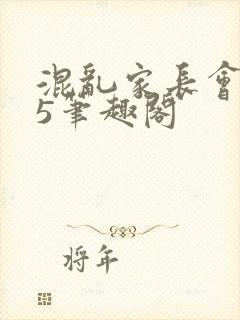 混亂家長會
5筆趣閣
將年